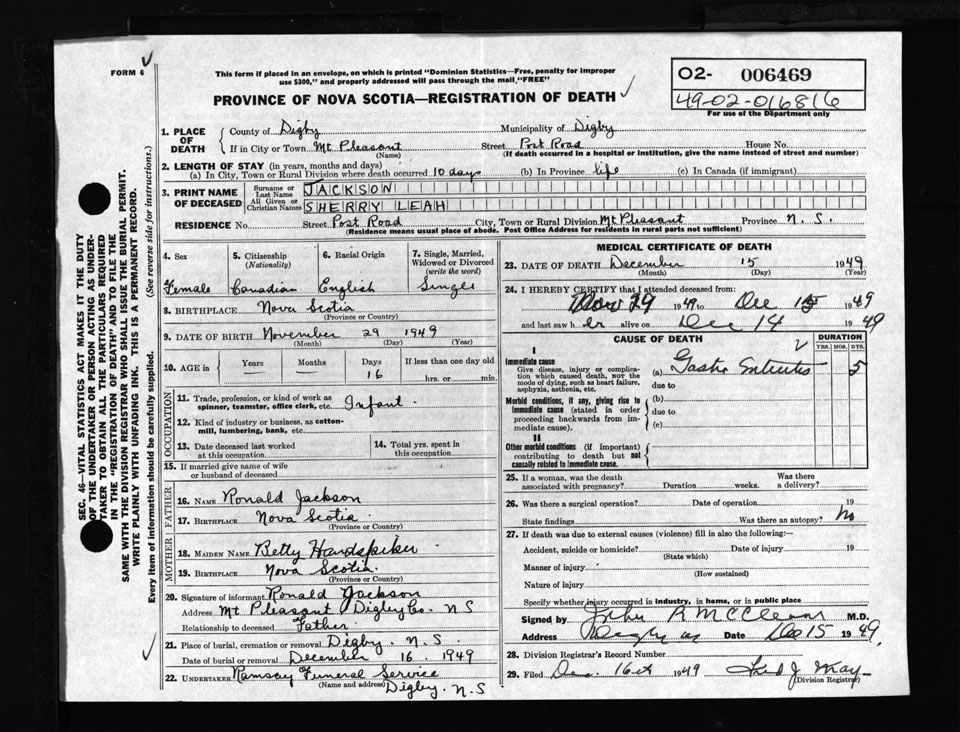 FORM 6
This form if placed in an envelope, on which is printed "Dominion Statistics—Free, penalty for improper
use $300," and properly addressed will pass through the mail "FREE"
PROVINCE OF NOVA SCOTIA—REGISTRATION OF DEATH
02- 006469
49-02-016816
For use of the Department only
1. PLACE OF DEATH
County of Digby Municipality of Digby
If in City or Town Mt Pleasant Street Post Road House No.
(Name) (If death occurred in a hospital or institution, give the name instead of street and number)
2. LENGTH OF STAY (in years, months and days)
(a) In City, Town or Rural Division where death occurred 10 days (b) In Province life (c) In Canada (if immigrant)
3. PRINT NAME OF DECEASED
Surname or Last Name JACKSON
All Given or Christian Names SHERRY LEAH
RESIDENCE No. Street Post Road City, Town or Rural Division Mt Pleasant Province N. S.
(Residence means usual place of abode. Post Office Address for residents in rural parts not sufficient)
4. Sex 5. Citizenship (Nationality) 6. Racial Origin 7. Single, Married, Widowed or Divorced (write the word)
Female Canadian English Single
8. BIRTHPLACE Nova Scotia
(Province or Country)
9. DATE OF BIRTH November 29 1949
(Month) (Day) (Year)
10. AGE in Years Months Days If less than one day old
16 hrs. or min.
OCCUPATION
11. Trade, profession or kind of work as
spinner, teamster, office clerk, etc. Infant
12. Kind of industry or business, as cotton-
mill, lumbering, bank, etc.
13. Date deceased last worked
at this occupation
14. Total yrs. spent in
this occupation
15. If married give name of wife
or husband of deceased
FATHER
16. NAME Ronald Jackson
17. BIRTHPLACE Nova Scotia
(Province or Country)
MOTHER
18. MAIDEN NAME Betty Handspiker
19. BIRTHPLACE Nova Scotia
(Province or Country)
20. Signature of informant Ronald Jackson
Address Mt Pleasant Digby Co. N S
Relationship to deceased Father
21. Place of burial, cremation or removal Digby. N. S.
Date of burial or removal December 16 1949
22. UNDERTAKER Ramsay Funeral Service
(Name and address) Digby. N. S
MEDICAL CERTIFICATE OF DEATH
23. DATE OF DEATH December 15 1949
(Month) (Day) (Year)
24. I HEREBY CERTIFY that I attended deceased from:
Nov 29 1949 to Dec 15 1949
and last saw her alive on Dec 14 1949
CAUSE OF DEATH
DURATION
YRS. MOS. DYS.
I
Immediate cause
Give disease, injury or complica-
tion which caused death, NOR the
mode of dying, such as heart failure,
asphyxia, asthenia, etc.
(a) Gastro Enteritis 5
due to
Morbid conditions, if any, giving rise to
immediate cause (stated in order
proceeding backwards from im-
mediate cause).
(b)
due to
(c)
II
Other morbid conditions (if important)
contributing to death but not
causally related to immediate cause.
25. If a woman, was the death
associated with pregnancy? Duration weeks. Was there
a delivery?
26. Was there a surgical operation? Date of operation 19
State findings Was there an autopsy? No
27. If death was due to external causes (violence) fill in also the following:—
Accident, suicide or homicide? Date of injury 19
(State which)
Manner of injury
(How sustained)
Nature of injury
Specify whether injury occurred in industry, in home, or in public place
Signed by John R McCleave M.D.
Address Digby NS Date Dec 15 1949
28. Division Registrar's Record Number
29. Filed Dec. 16th 1949
(Division Registrar)
SEC. 46—VITAL STATISTICS ACT MAKES IT THE DUTY
OF THE UNDERTAKER OR PERSON ACTING AS UNDER-
TAKER TO OBTAIN ALL THE PARTICULARS REQUIRED
IN THE "REGISTRATION OF DEATH" AND TO FILE THE
SAME WITH THE DIVISION REGISTRAR WHO SHALL ISSUE THE BURIAL PERMIT.
WRITE PLAINLY WITH UNFADING INK. THIS IS A PERMANENT RECORD.
Every item of information should be carefully supplied. (See reverse side for instructions.)